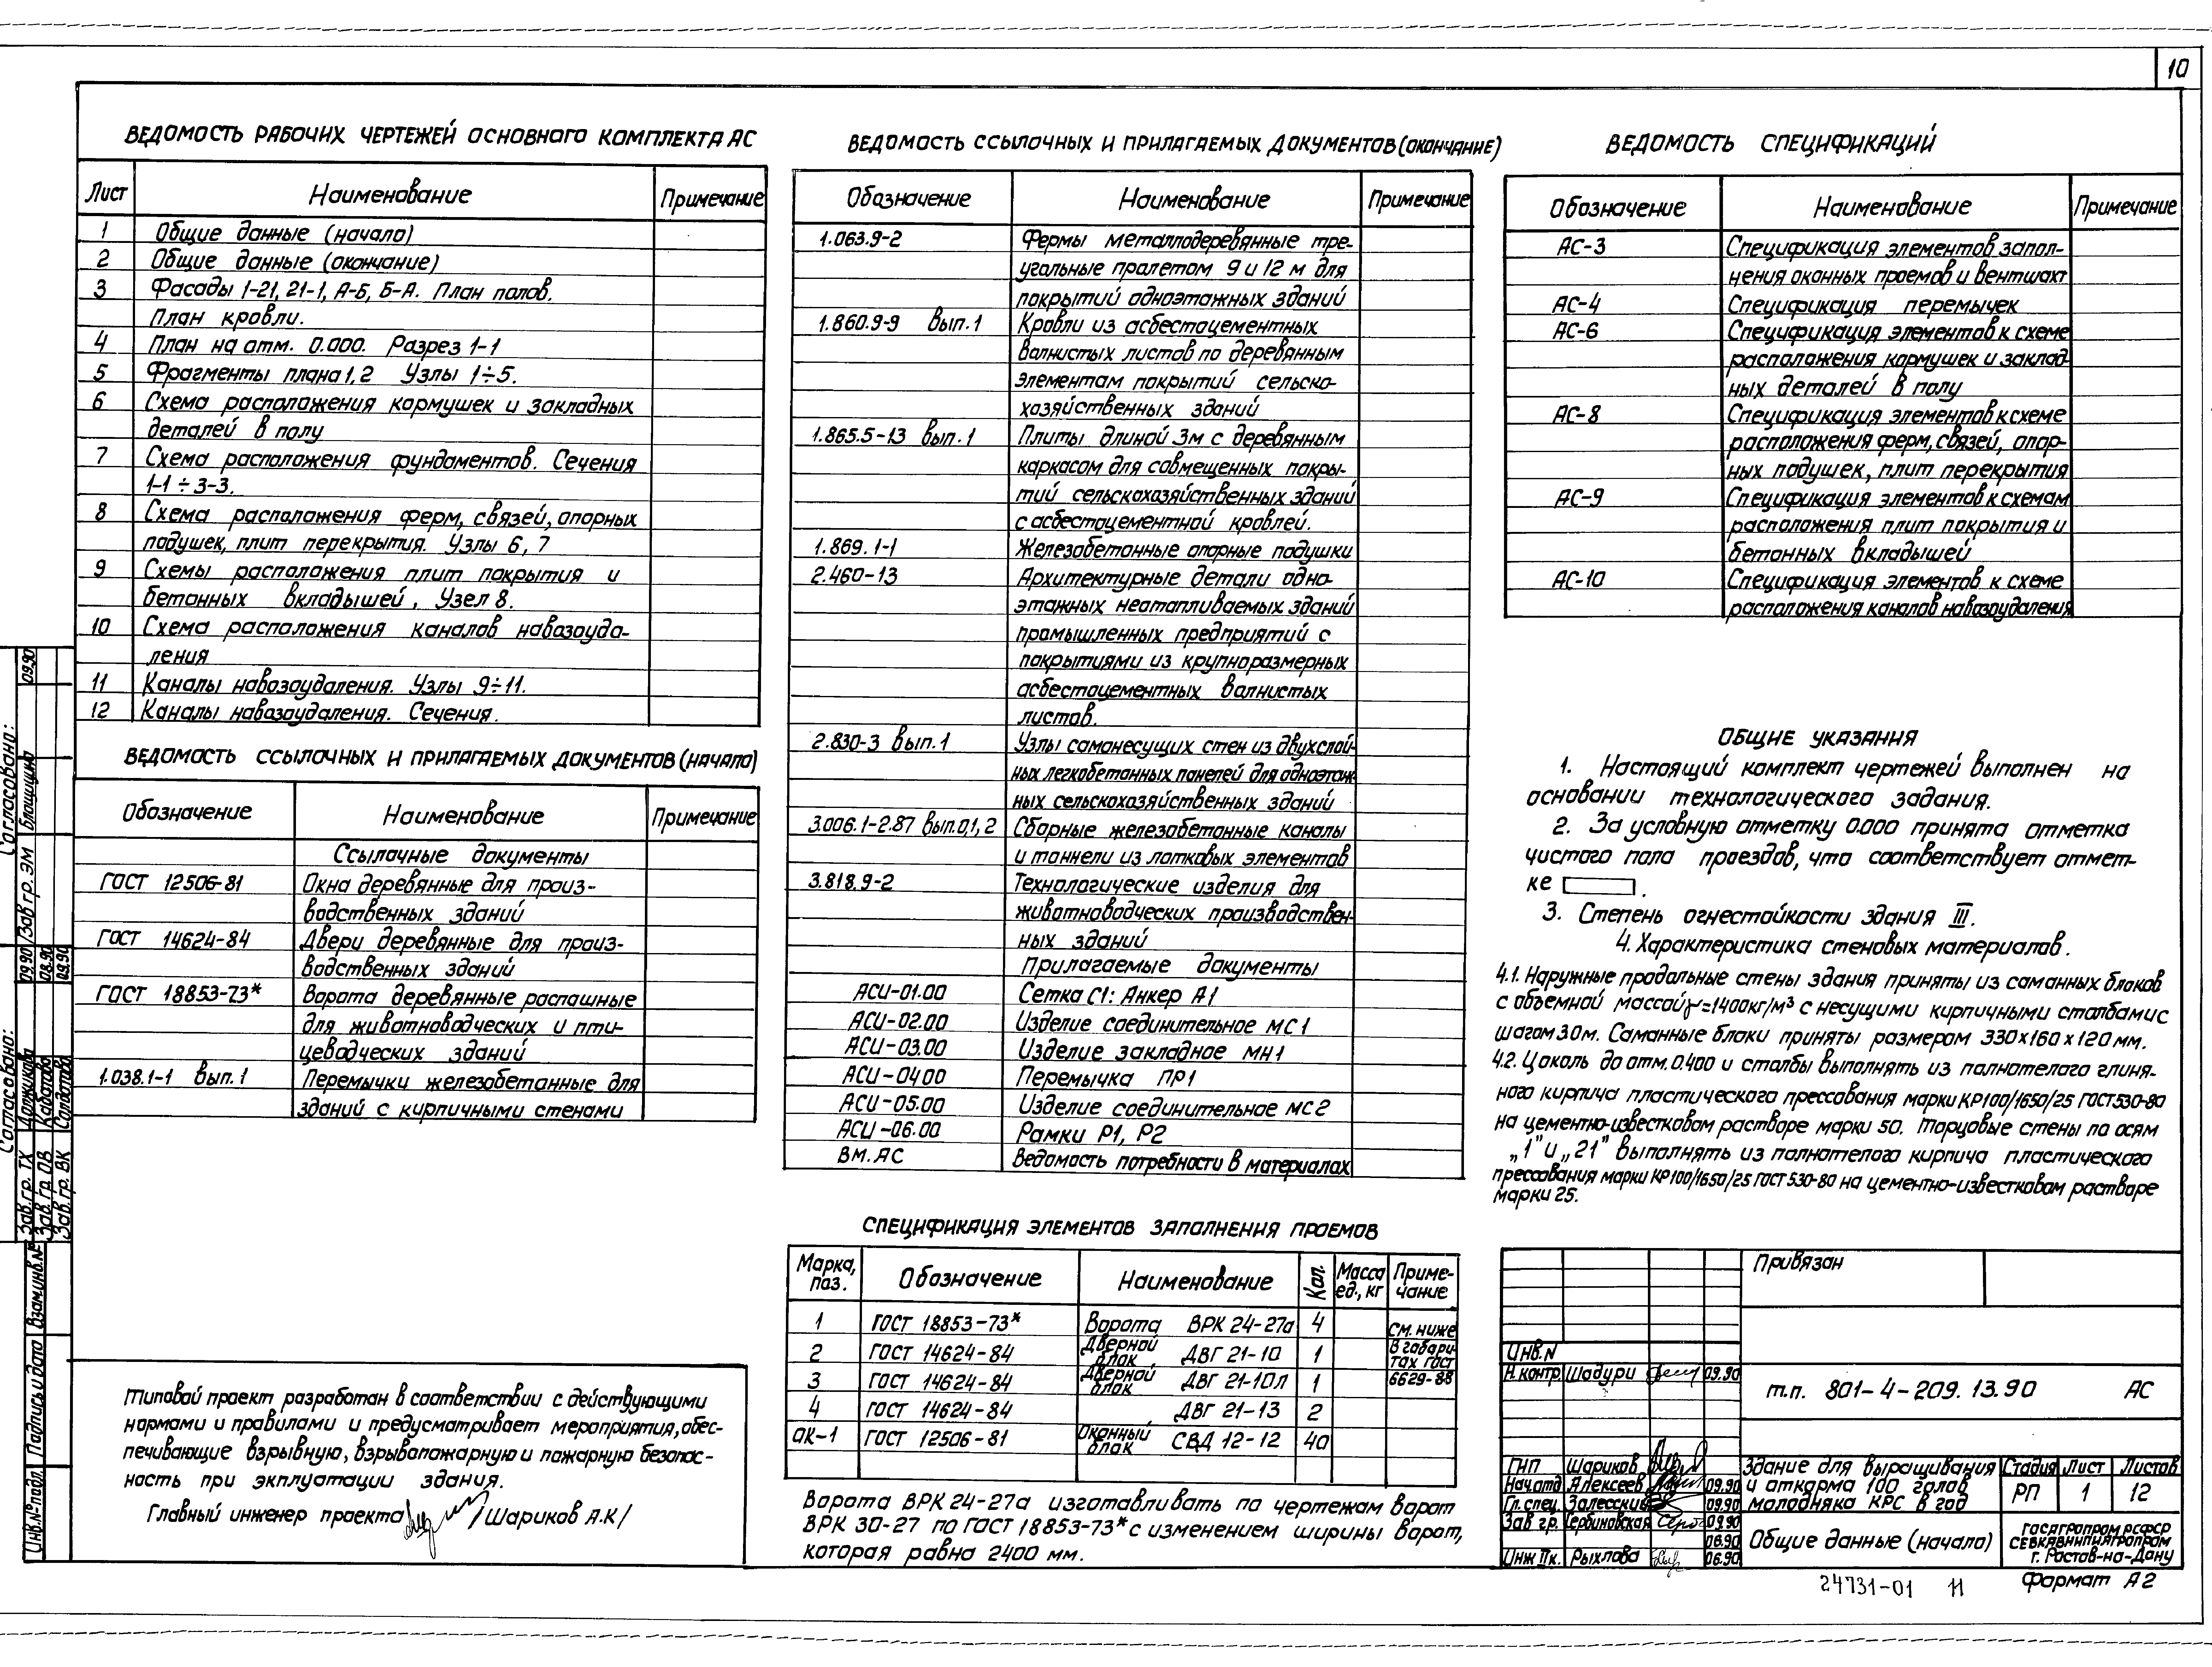 10
ВЕДОМОСТЬ РАБОЧИХ ЧЕРТЕЖЕЙ ОСНОВНОГО КОМПЛЕКТА АС
Лист Наименование Примечание
1 Общие данные (начало)
2 Общие данные (окончание)
3 Фасады 1-21, 21-1, А-Б, Б-А. План полов.
План кровли.
4 План на отм. 0.000. Разрез 1-1
5 Фрагменты плана 1, 2 Узлы 1÷5.
6 Схема расположения кормушек и закладных
деталей в полу
7 Схема расположения фундаментов. Сечения
1-1 ÷ 3-3.
8 Схема расположения ферм, связей, опорных
подушек, плит перекрытия. Узлы 6, 7
9 Схемы расположения плит покрытия и
бетонных вкладышей, Узел 8.
10 Схема расположения каналов навозоуда-
ления
11 Каналы навозоудаления. Узлы 9÷11.
12 Каналы навозоудаления. Сечения.
ВЕДОМОСТЬ ССЫЛОЧНЫХ И ПРИЛАГАЕМЫХ ДОКУМЕНТОВ (НАЧАЛО)
Обозначение Наименование Примечание
Ссылочные документы
ГОСТ 12506-81 Окна деревянные для произ-
водственных зданий
ГОСТ 14624-84 Двери деревянные для произ-
водственных зданий
ГОСТ 18853-73* Ворота деревянные распашные
для животноводческих и пти-
цеводческих зданий
1.038.1-1 вып. 1 Перемычки железобетонные для
зданий с кирпичными стенами
Типовой проект разработан в соответствии с действующими
нормами и правилами и предусматривает мероприятия, обес-
печивающие взрывную, взрывопожарную и пожарную безопас-
ность при экплуатации здания.
Главный инженер проекта /Шариков А.К/
ВЕДОМОСТЬ ССЫЛОЧНЫХ И ПРИЛАГАЕМЫХ ДОКУМЕНТОВ (ОКОНЧАНИЕ)
Обозначение Наименование Примечание
1.063.9-2 Фермы металлодеревянные тре-
угольные пролетом 9 и 12 м для
покрытий одноэтажных зданий
1.860.9-9 вып. 1 Кровли из асбестоцементных
волнистых листов по деревянным
элементам покрытий сельско-
хозяйственных зданий
1.865.5-13 вып. 1 Плиты длиной 3м с деревянным
каркасом для совмещенных покры-
тий сельскохозяйственных зданий
с асбестоцементной кровлей.
1.869.1-1 Железобетонные опорные подушки
2.460-13 Архитектурные детали одно-
этажных неотапливаемых зданий
промышленных предприятий с
покрытиями из крупноразмерных
асбестоцементных волнистых
листов.
2.830-3 вып. 1 Узлы самонесущих стен из двухслой-
ных легкобетонных панелей для одноэтаж-
ных сельскохозяйственных зданий
3.006.1-2.87 вып.0,1,2 Сборные железобетонные каналы
и тоннели из лотковых элементов
3.818.9-2 Технологические изделия для
животноводческих производствен-
ных зданий
Прилагаемые документы
АСИ-01.00 Сетка С1: Анкер А1
АСИ-02.00 Изделие соединительное МС1
АСИ-03.00 Изделие закладное МН1
АСИ-04.00 Перемычка ПР1
АСИ-05.00 Изделие соединительное МС2
АСИ-06.00 Рамки Р1, Р2
ВМ. АС Ведомость потребности в материалах
СПЕЦИФИКАЦИЯ ЭЛЕМЕНТОВ ЗАПОЛНЕНИЯ ПРОЕМОВ
Марка, поз. Обозначение Наименование Кол. Масса ед., кг Приме-чание
1 ГОСТ 18853-73* Ворота ВРК 24-27а 4 См. ниже
2 ГОСТ 14624-84 Дверной блок ДВГ 21-10 1 В габари-тах ГОСТ
3 ГОСТ 14624-84 Дверной блок ДВГ 21-10Л 1 6629-88
4 ГОСТ 14624-84 ДВГ 21-13 2
ОК-1 ГОСТ 12506-81 Оконный блок СВД 12-12 40
Ворота ВРК 24-27а изготавливать по чертежам ворот
ВРК 30-27 по ГОСТ 18853-73* с изменением ширины ворот,
которая равна 2400 мм.
ВЕДОМОСТЬ СПЕЦИФИКАЦИЙ
Обозначение Наименование Примечание
АС-3 Спецификация элементов запол-
нения оконных проемов и вентшахт
АС-4 Спецификация перемычек
АС-6 Спецификация элементов к схеме
расположения кормушек и заклад-
ных деталей в полу
АС-8 Спецификация элементов к схеме
расположения ферм, связей, опор-
ных подушек, плит перекрытия
АС-9 Спецификация элементов к схемам
расположения плит покрытия и
бетонных вкладышей
АС-10 Спецификация элементов к схеме
расположения каналов навозоудаления
ОБЩИЕ УКАЗАНИЯ
1. Настоящий комплект чертежей выполнен на
основании технологического задания.
2. За условную отметку 0.000 принята отметка
чистого пола проездов, что соответствует отмет-
ке .
3. Степень огнестойкости здания III.
4. Характеристика стеновых материалов.
4.1. Наружные продольные стены здания приняты из саманных блоков
с объемной массой γ=1400кг/м³ с несущими кирпичными столбами с
шагом 3.0м. Саманные блоки приняты размером 330х160х120 мм.
4.2. Цоколь до отм. 0.400 и столбы выполнять из полнотелого глиня-
ного кирпича пластического прессования марки КР100/1650/25 ГОСТ530-80
на цементно-известковом растворе марки 50. Торцовые стены по осям
„1" и „21" выполнять из полнотелого кирпича пластического
прессования марки КР100/1650/25 ГОСТ 530-80 на цементно-известковом растворе
марки 25.
Привязан
Инв.N
Н.контр. Шадури 09.90
т.п. 801-4-209.13.90 АС
ГИП Шариков
Нач.отд Алексеев 09.90
Гл.спец. Залесский 09.90
Зав гр. Сербиновская 09.90
06.90
Инж IIк. Рыхлова 06.90
Здание для выращивания
и откорма 100 голов
молодняка КРС в год
Стадия Лист Листов
РП 1 12
Общие данные (начало)
ГОСАГРОПРОМ РСФСР
СЕВКАВНИПИАГРОПРОМ
г. Ростов-на-Дону
24731-01 11
Формат А2
Согласовано:
Зав гр. ЭМ 09.90
Согласовано:
Зав. гр. ТХ Должикова 09.90
Зав. гр. ОВ 08.90
Зав. гр. ВК Солдатова 09.90
Взам.инв.№
Подпись и дата
Инв.№ подл.